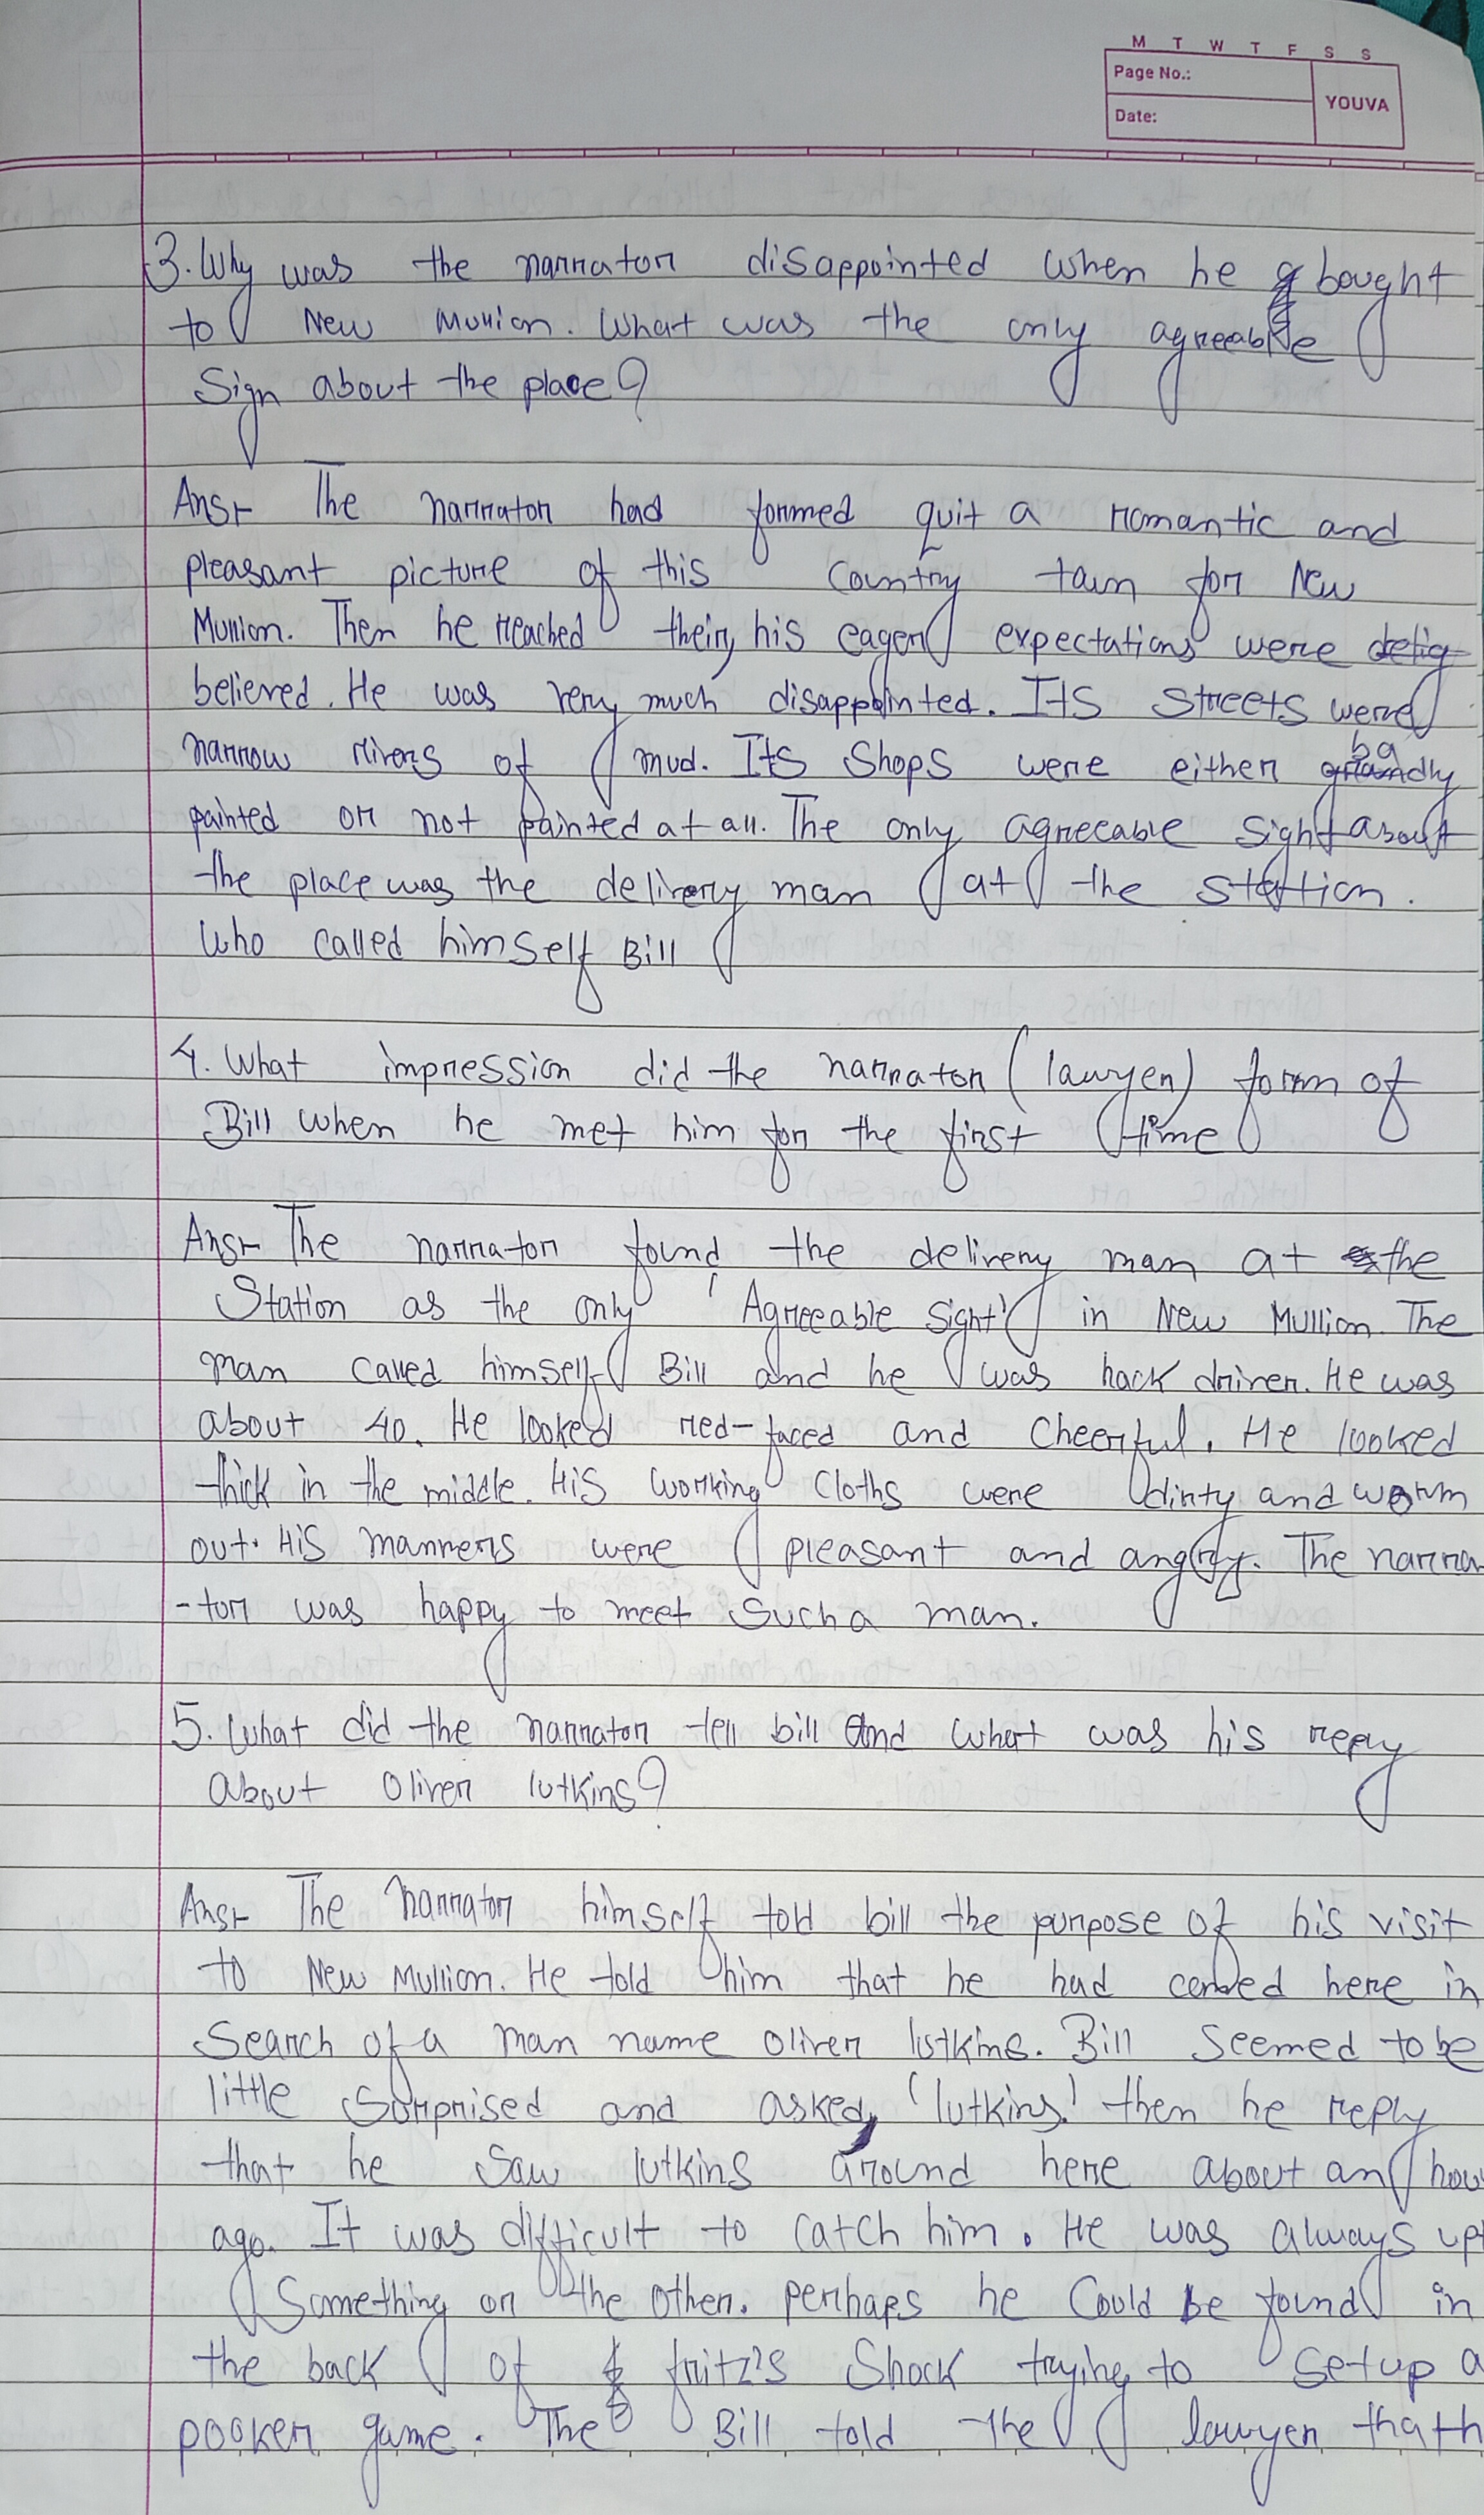 M T W T F S S
Page No.:
YOUVA
Date:
3. Why was the narrator disappointed when he bought
to New Mullion. What was the only agreeable
Sign about the place?
Ans:- The narrator had formed quit a romantic and
pleasant picture of this country tawn for New
Mullion. Then he reached their, his eager expectations were
believed. He was very much disappointed. Its Streets were
narrow rivers of mud. Its Shops were either badly
painted or not painted at all. The only agreeable Sight about
the place was the delivery man at the station.
Who called himself Bill
4. What impression did the narrator (lawyer) form of
Bill when he met him for the first time
Ans:- The narrator found the delivery man at the
Station as the only 'Agreeable Sight' in New Mullion. The
man called himself Bill and he was hack driver. He was
about 40. He looked red-faced and cheerful. He looked
thick in the middle. His working cloths were dirty and worn
out. His manners were pleasant and The narra
-tor was happy to meet such a man.
5. What did the narrator tell bill and what was his reply
about Oliver lutkins?
Ans:- The narrator himself told bill the purpose of his visit
to New Mullion. He told him that he had here in
Search of a man name Oliver lutkins. Bill Seemed to be
little Surprised and asked, 'lutkins!' then he reply
that he Saw lutkins around here about an hou
ago. It was difficult to catch him. He was always up
Something or the other. perhaps he Could be found in
the back of fritz's Shock trying to Setup a
pooker game. The Bill told the lawyer that h